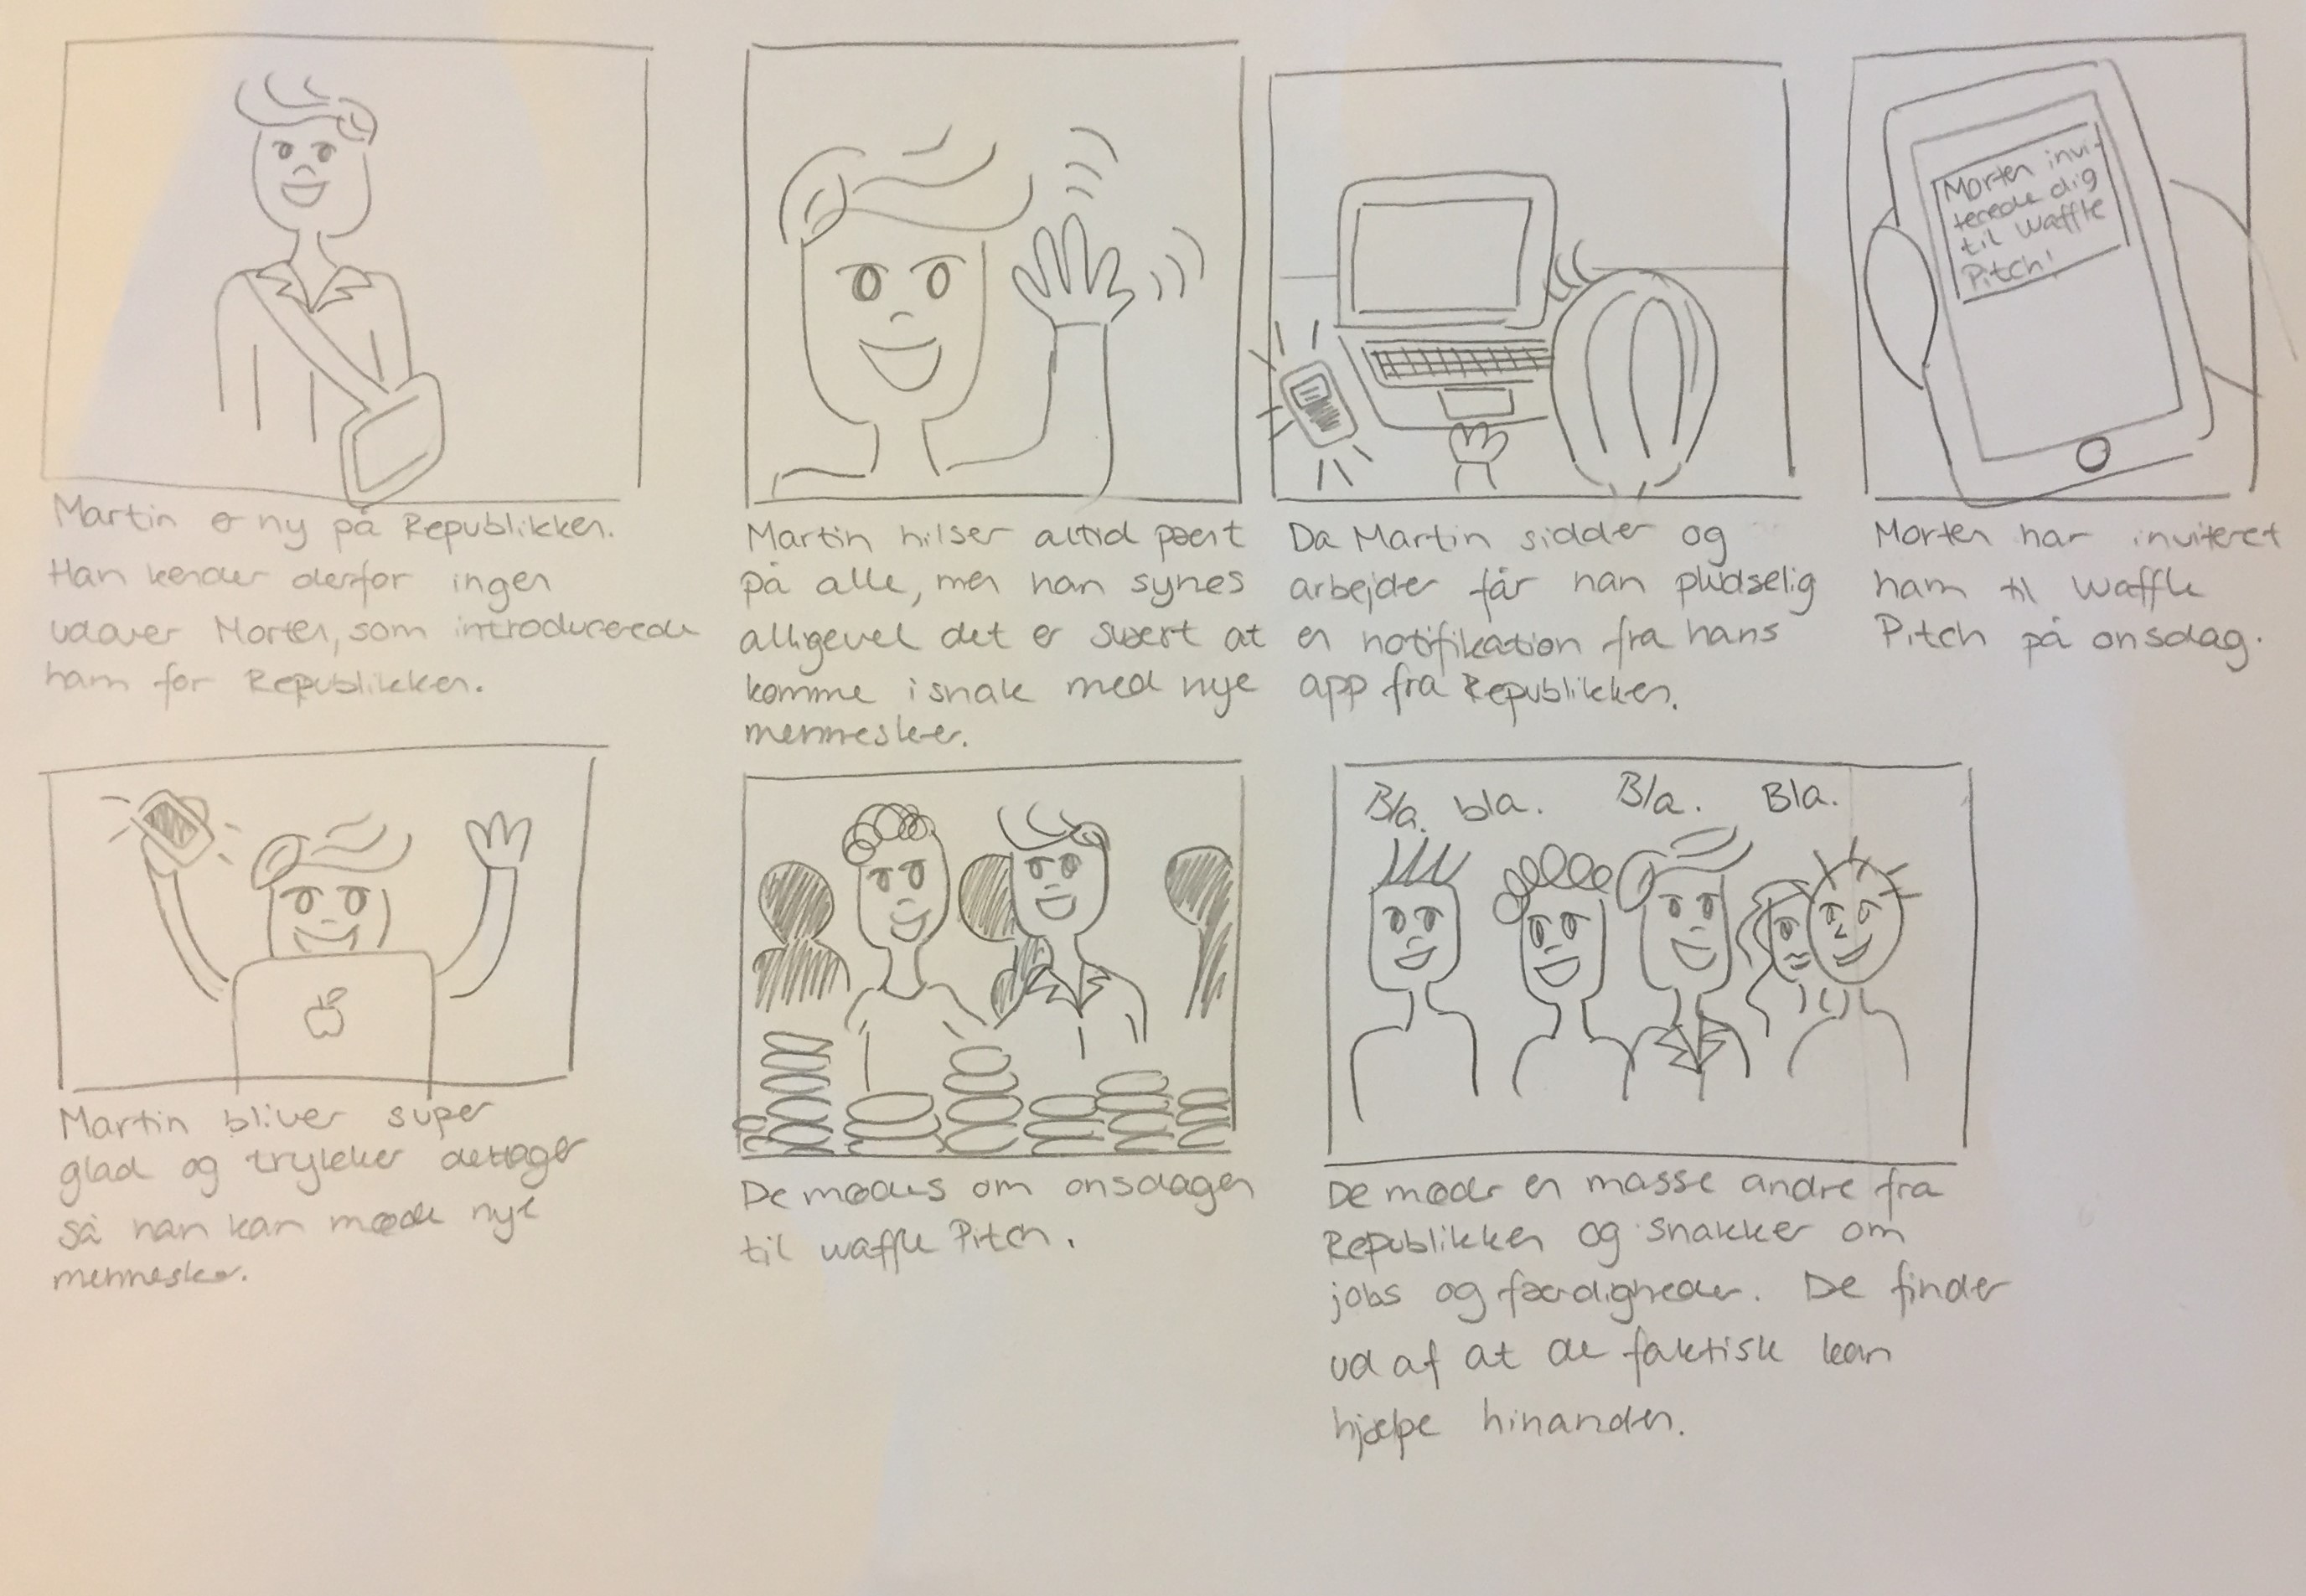 Martin er ny på Republikken.
Han kender derfor ingen
udover Morten, som introducerede
ham for Republikken.
Martin hilser altid pænt
på alle, men han synes
alligevel det er svært at
komme i snak med nye
mennesker.
Da Martin sidder og
arbejder får han pludselig
en notifikation fra hans
app fra Republikken.
Morten invi-
terede dig
til waffle
Pitch!
Morten har inviteret
ham til waffle
Pitch på onsdag.
Martin bliver super
glad og trykker deltager
så han kan møde nye
mennesker.
De mødes om onsdagen
til waffle Pitch.
Bla. bla. Bla. Bla.
De møder en masse andre fra
Republikken og snakker om
jobs og færdigheder. De finder
ud af at de faktisk kan
hjælpe hinanden.